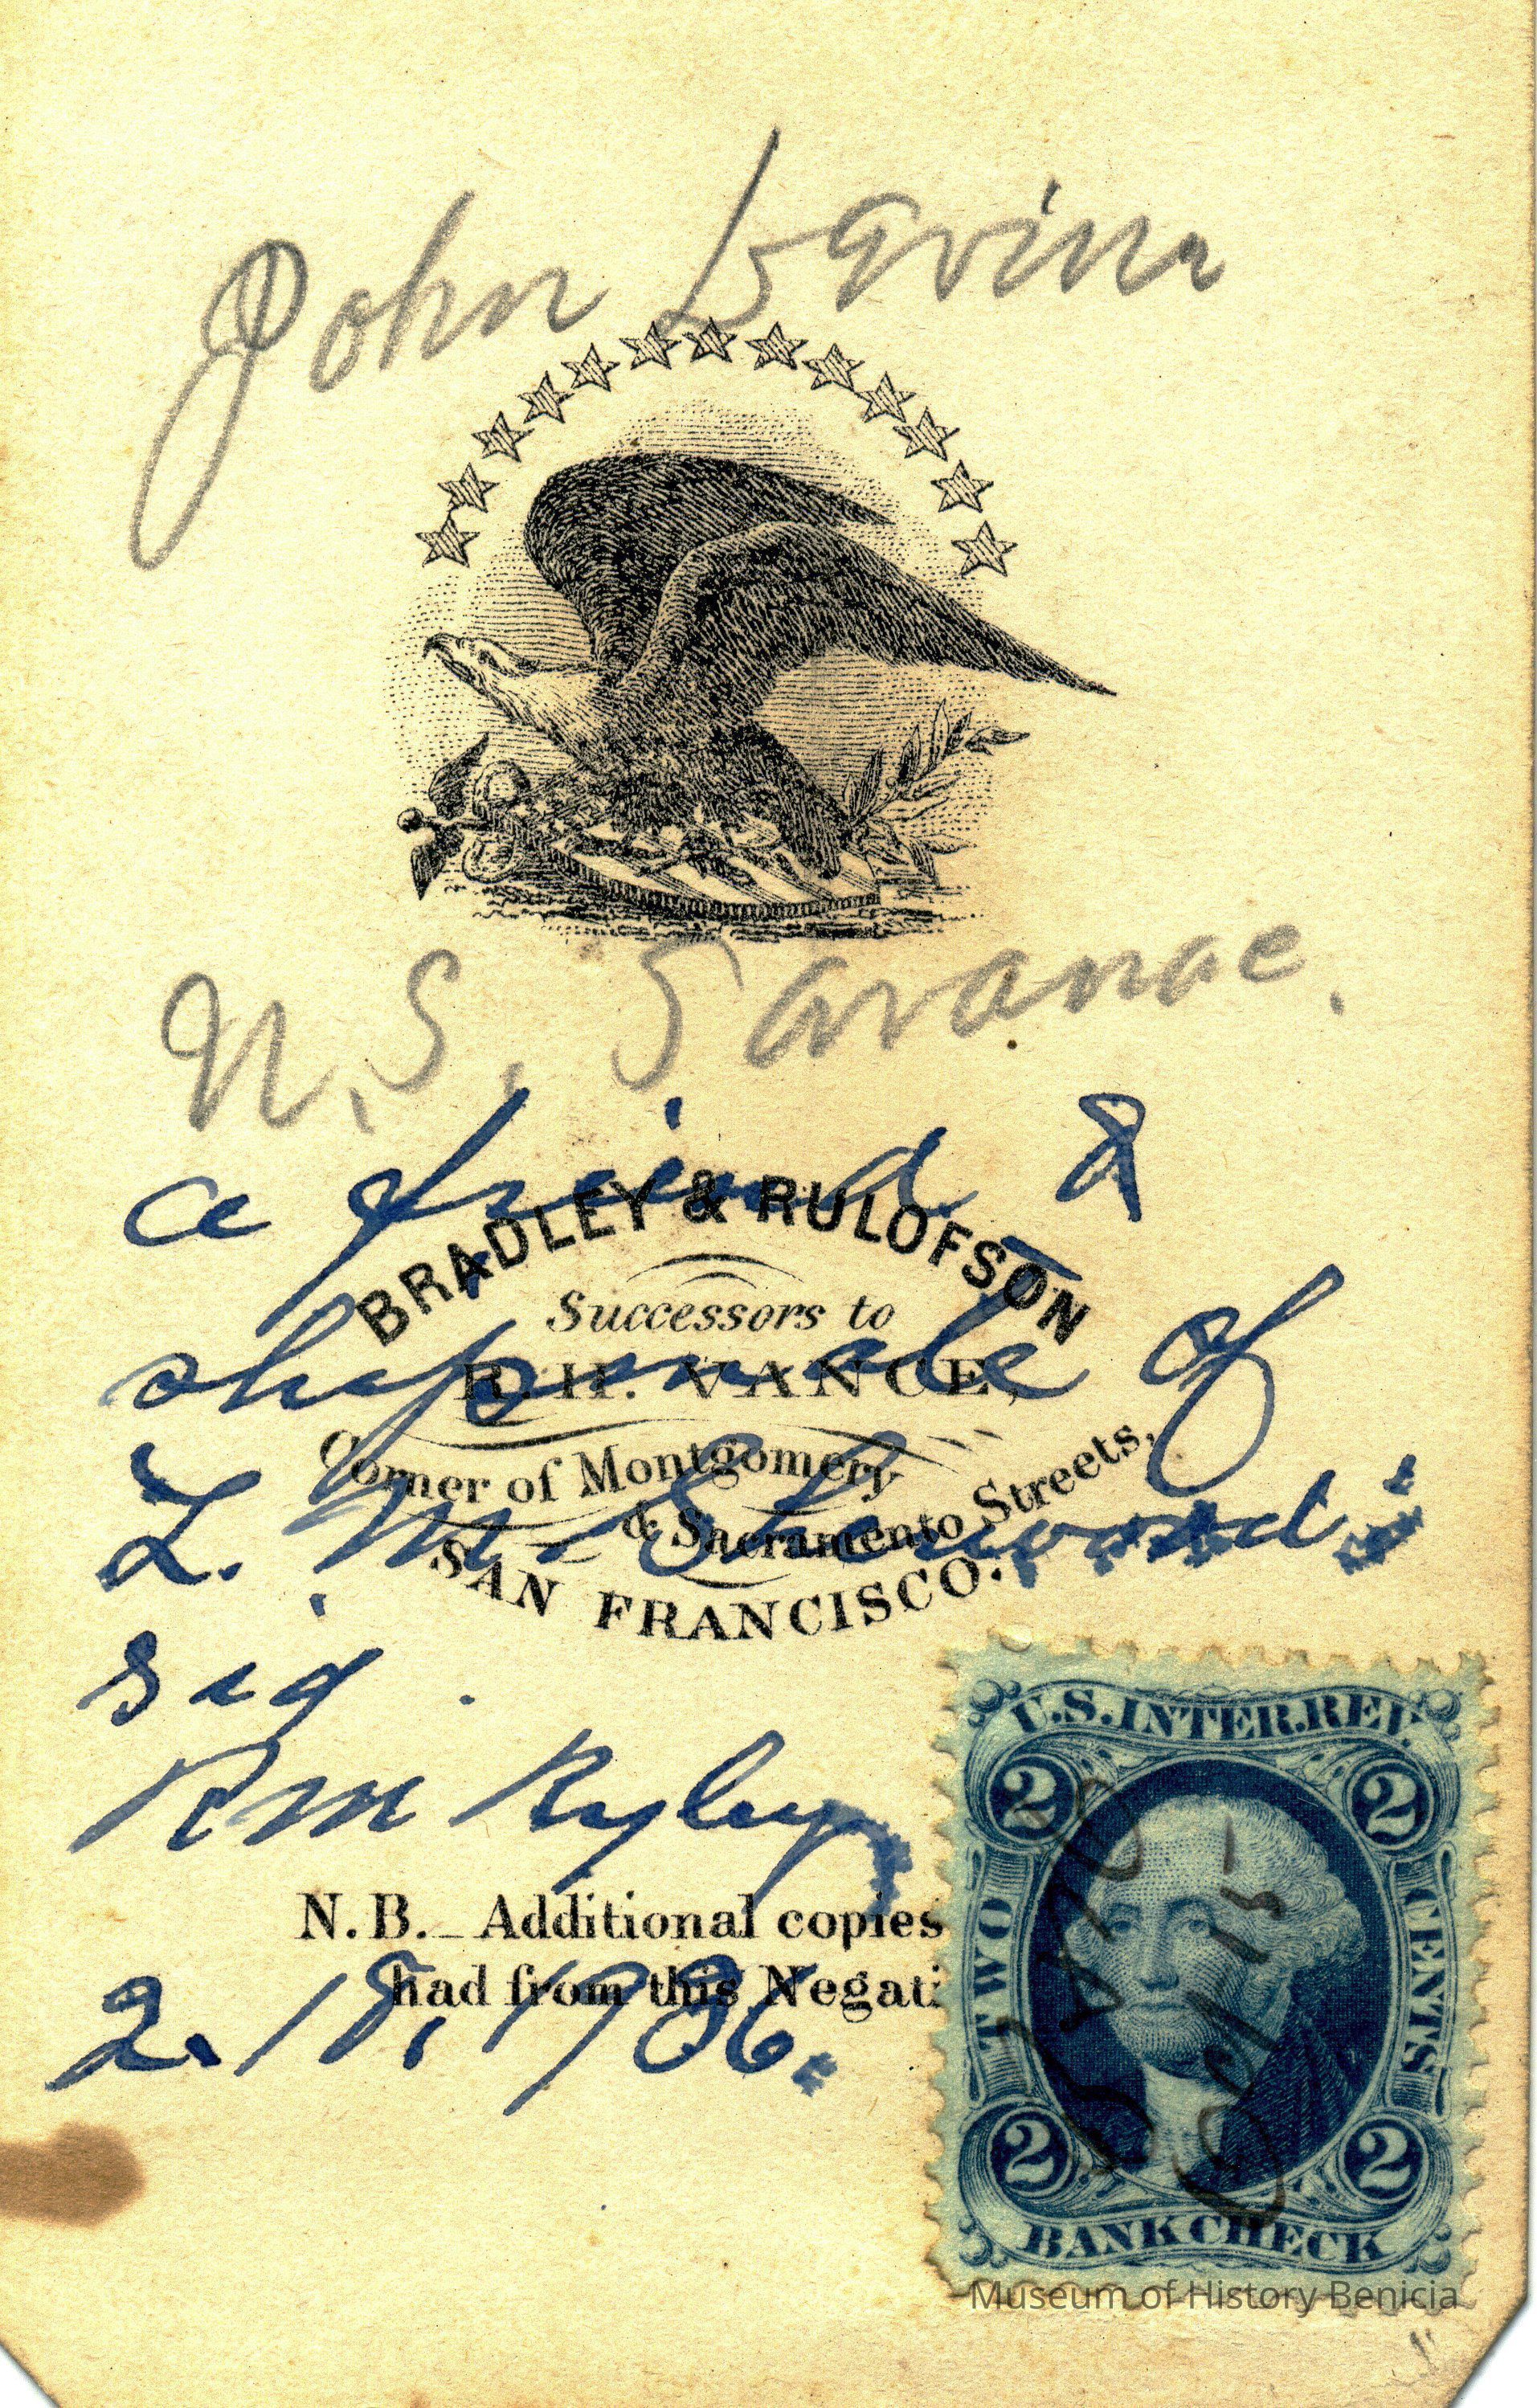 John Lavinr
U.S. Saranac.
a friend &
BRADLEY & RULOFSON
Successors to
shipmate of
R. H. VANCE,
Corner of Montgomery
& Sacramento Streets,
L. M. Sherwood:
SAN FRANCISCO.
sig.
RM Ryley
N.B. _ Additional copies
had from this Negati
2.18,1986.
U.S. INTER. REV.
2 2
TWO CENTS
2 2
BANK CHECK
Museum of History Benicia